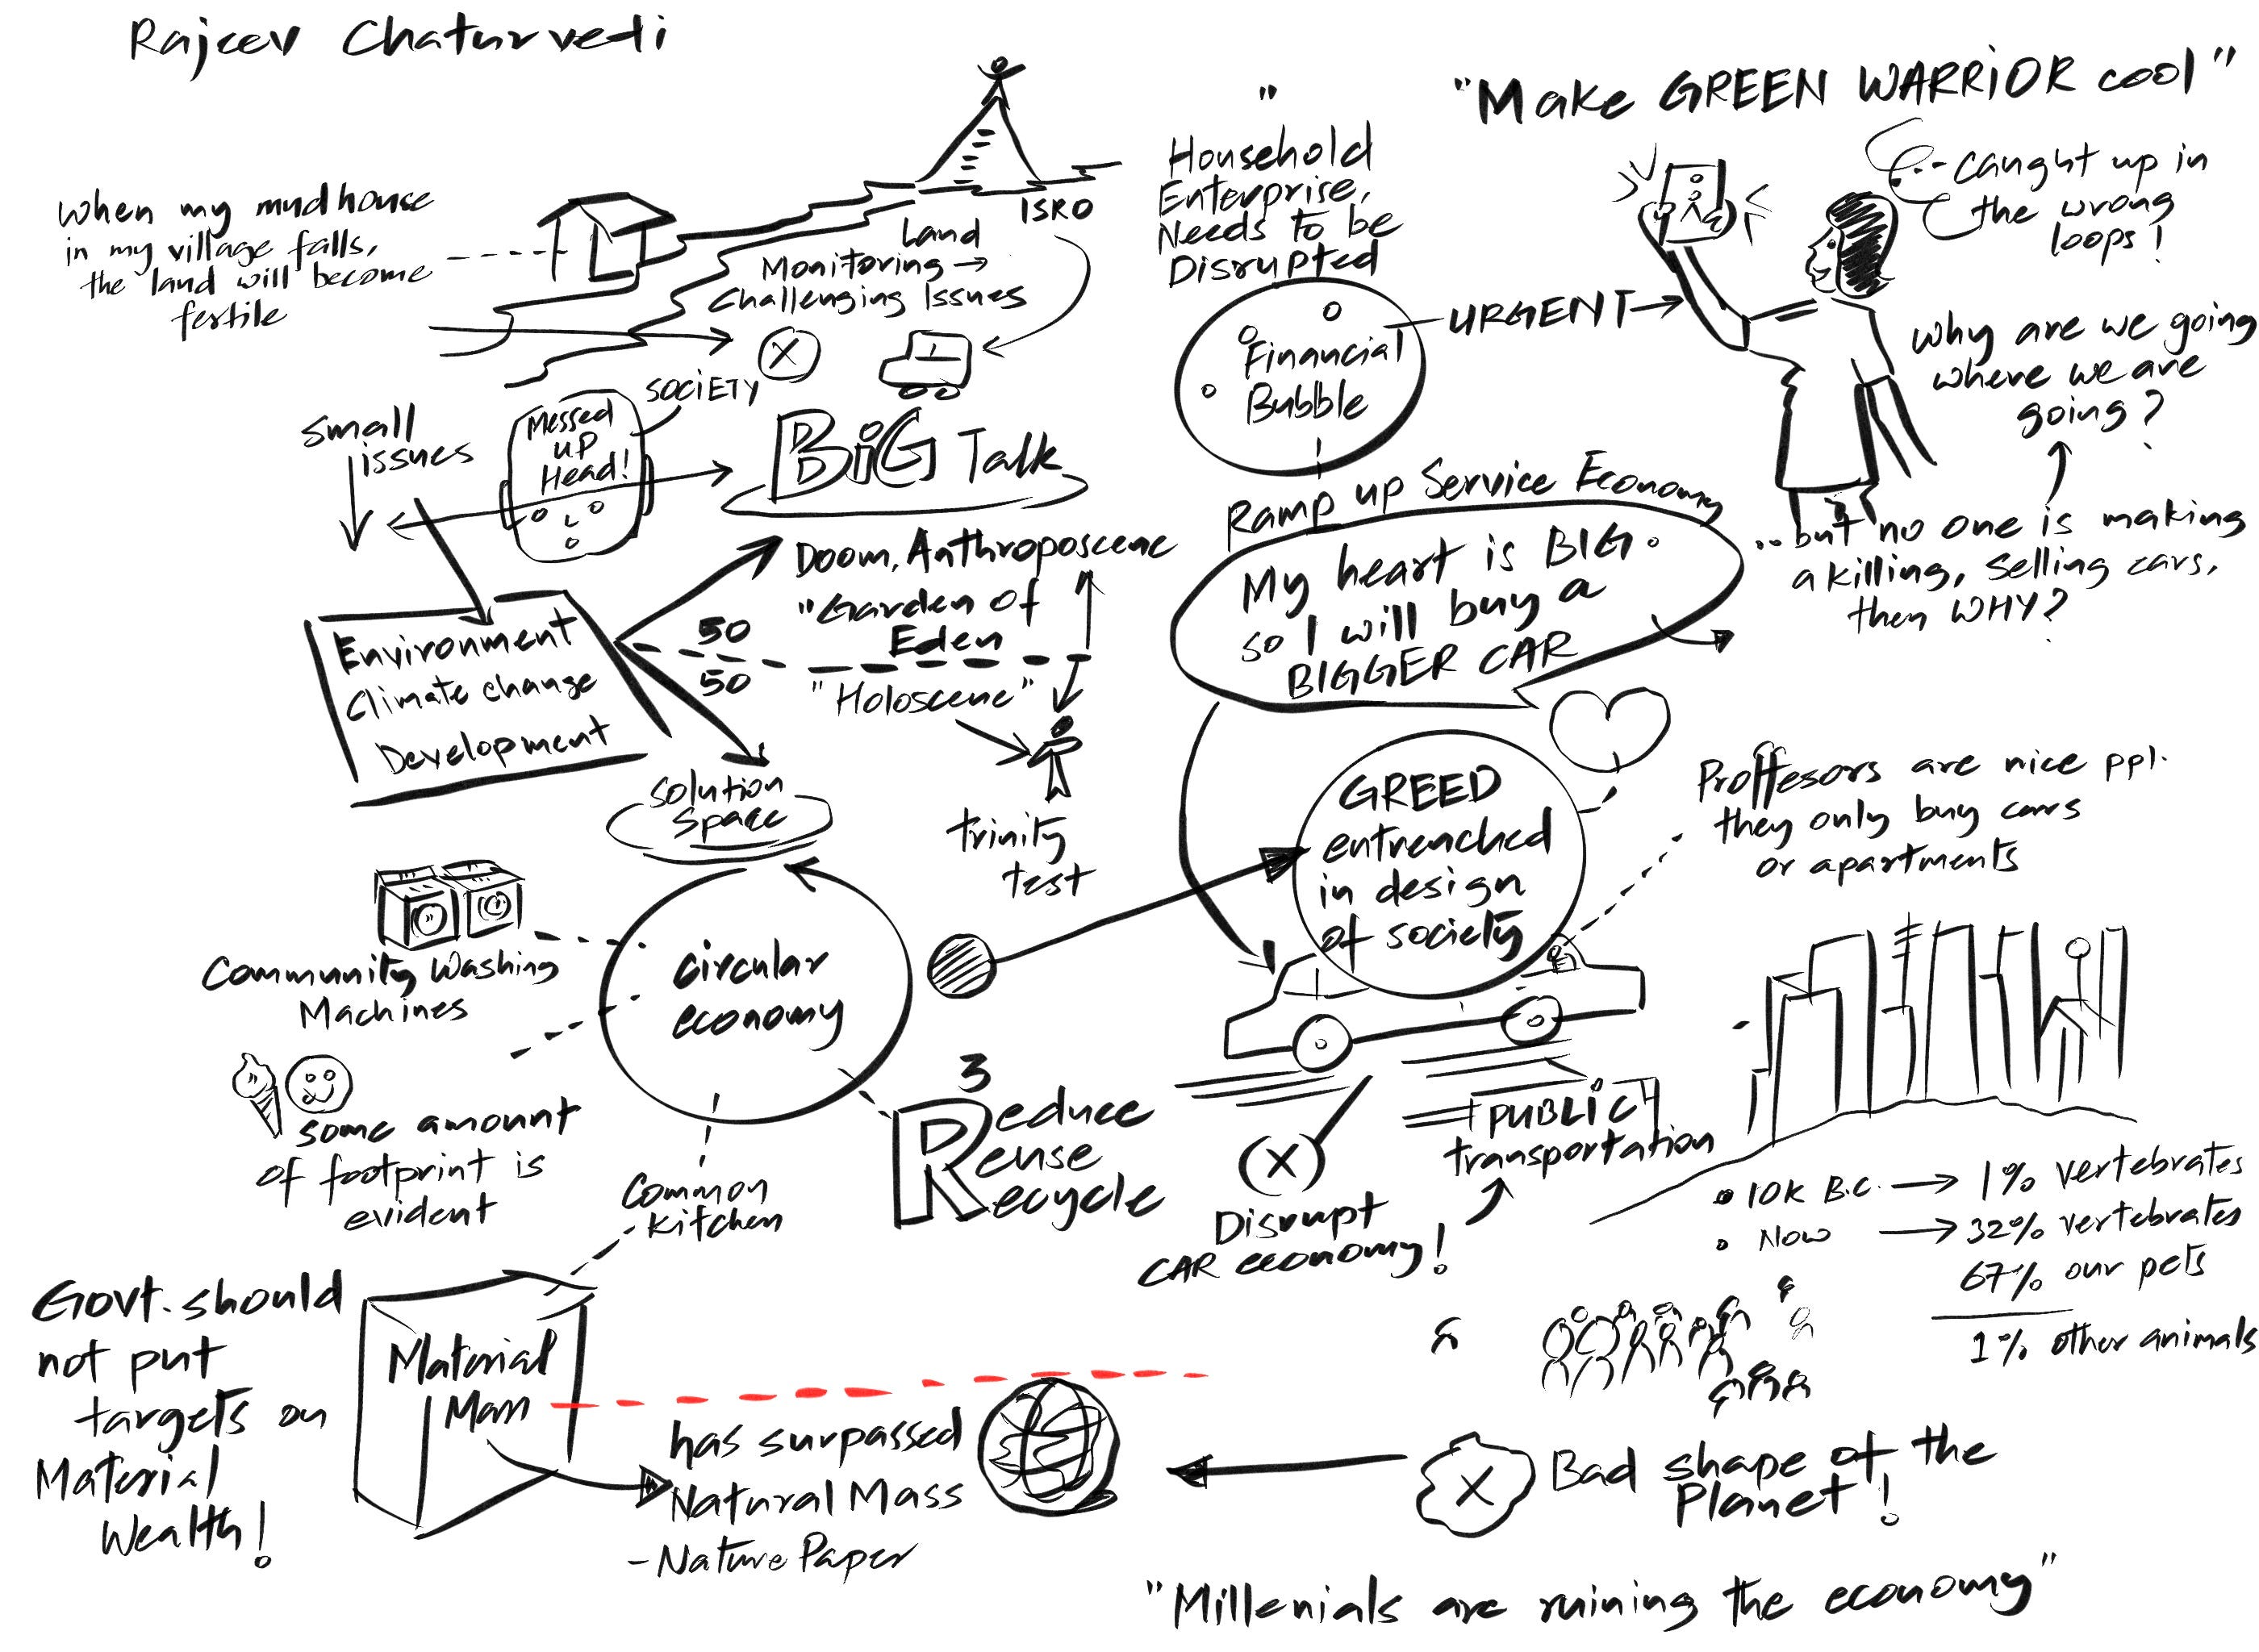 Rajeev Chaturvedi
"Make GREEN WARRIOR cool"
when my mudhouse
in my village falls,
the land will become
fertile
ISRO
Land
Monitoring →
Challenging Issues
"
Household
Enterprise,
Needs to be
Disrupted
- caught up in
the wrong
loops!
Financial
Bubble
URGENT
why are we going
where we are
going?
X
SOCIETY
small
issues
Messed
up
Head!
BIG Talk
Ramp up Service Economy
My heart is BIG.
so I will buy a
BIGGER CAR
..but no one is making
a killing, selling cars,
then WHY?
Environment
Climate change
Development
50
50
Doom, Anthroposcene
"Garden of
Eden
"Holoscene"
trinity
test
solution
space
GREED
entrenched
in design
of society
Proffesors are nice ppl.
they only buy cars
or apartments
Community Washing
Machines
circular
economy
some amount
of footprint is
evident
Common
Kitchen
3
Reduce
Reuse
Recycle
(X)
Disrupt
CAR economy!
PUBLIC
transportation
• 10K B.C. → 1% vertebrates
• Now → 32% vertebrates
67% our pets
1% other animals
Govt. should
not put
targets on
Material
Wealth!
Material
Mass
has surpassed
Natural Mass
- Nature Paper
X
Bad shape of the
Planet!
"Millenials are ruining the economy"